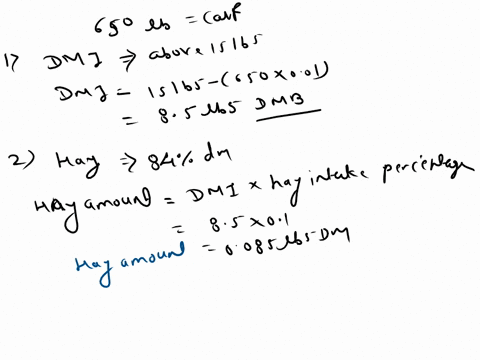 650 lb = Calf
1) DMI ⇒ above 15 lbs
DMI = 15 lbs - (650 × 0.01)
= 8.5 lbs DMB
2) Hay ⇒ 84% dm
HAy amount = DMI × hay intake percentage
= 8.5 × 0.1
Hay amount = 0.085 lbs DM